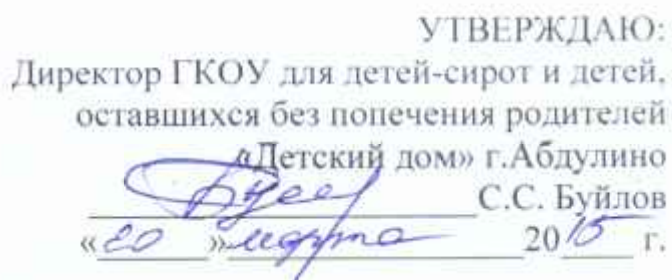 УТВЕРЖДАЮ:
Директор ГКОУ для детей-сирот и детей,
оставшихся без попечения родителей
«Детский дом» г.Абдулино
С.С. Буйлов
«20» марта 2015 г.